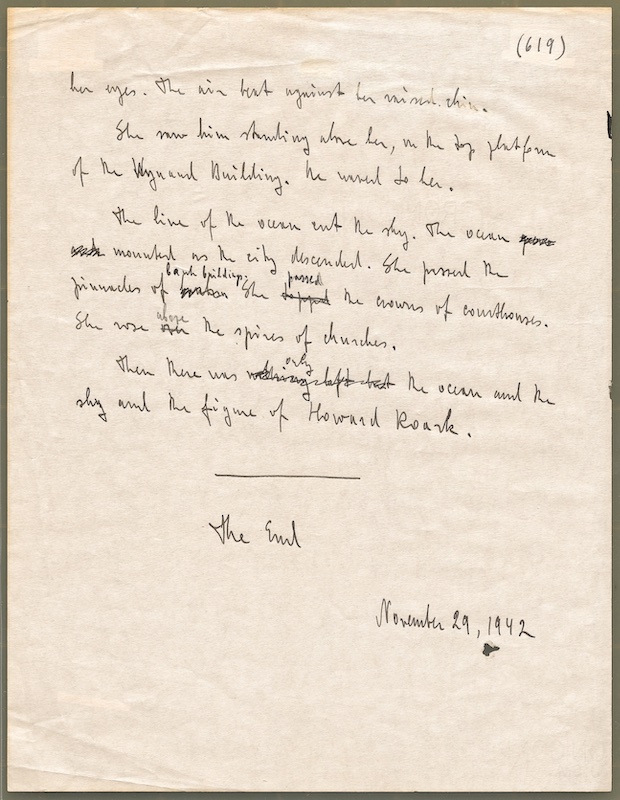 (619)
her eyes. The air beat against her raised chin.
She saw him standing above her, on the top platform
of the Wynand Building. He waved to her.
The line of the ocean cut the sky. The ocean
mounted as the city descended. She passed the
pinnacles of bank buildings. She passed the crowns of courthouses.
She rose above the spires of churches.
Then there was only the ocean and the
sky and the figure of Howard Roark.
The End
November 29, 1942